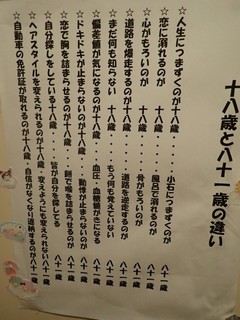 十八歳と八十一歳の違い
☆人生につまずくのが十八歳・・・・小石につまずくのが 八十一歳
☆恋に溺れるのが 十八歳・・・・風呂で溺れるのが 八十一歳
☆心がもろいのが 十八歳・・・・骨がもろいのが 八十一歳
☆道路を爆走するのが十八歳・・・・道路を逆走するのが 八十一歳
☆まだ何も知らない 十八歳・・・・もう何も覚えていない 八十一歳
☆偏差値が気になるのが十八歳・・・・血圧・血糖値が気になる 八十一歳
☆ドキドキが止まらないのが十八歳・・動悸が止まらないのが 八十一歳
☆恋で胸を詰まらせるのが十八歳・・・餅で喉を詰まらせるのが 八十一歳
☆自分探しをしている十八歳・・・・皆が自分を探してる 八十一歳
☆ヘアスタイルを変えられるのが十八歳・・変えようにも変えられない八十一歳
☆自動車の免許証が取れるのが十八歳・自信がなくなり返納するのが八十一歳